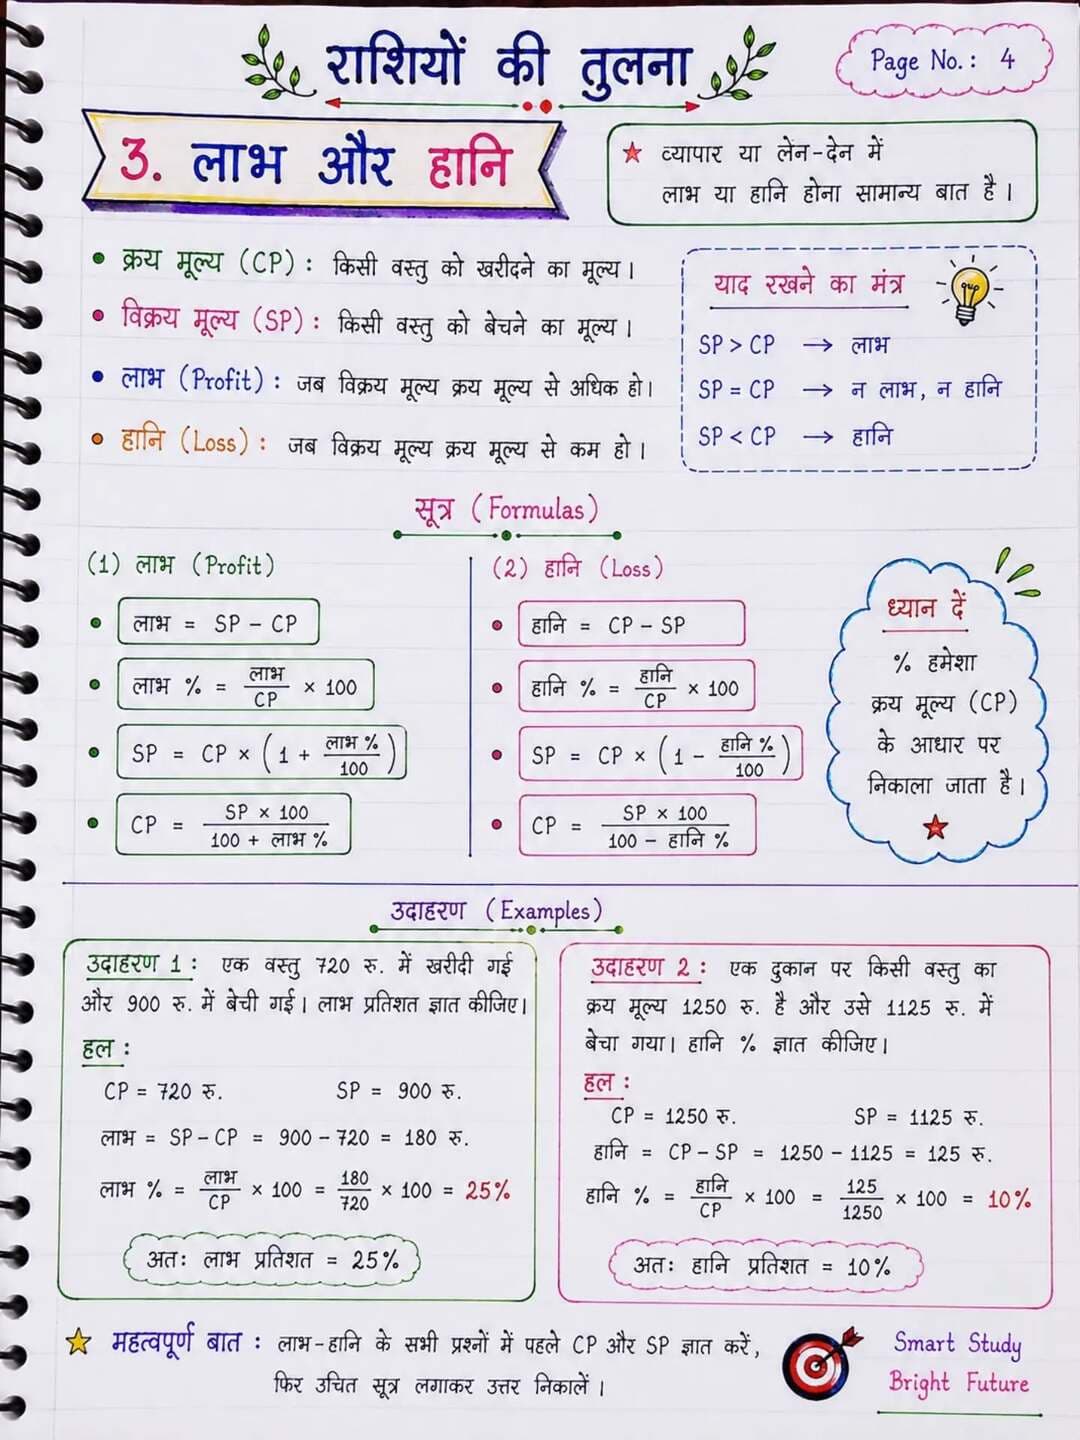 राशियों की तुलना
Page No.: 4
3. लाभ और हानि
★ व्यापार या लेन-देन में
लाभ या हानि होना सामान्य बात है।
• क्रय मूल्य (CP) : किसी वस्तु को खरीदने का मूल्य।
• विक्रय मूल्य (SP) : किसी वस्तु को बेचने का मूल्य।
• लाभ (Profit) : जब विक्रय मूल्य क्रय मूल्य से अधिक हो।
• हानि (Loss) : जब विक्रय मूल्य क्रय मूल्य से कम हो।
याद रखने का मंत्र
SP > CP → लाभ
SP = CP → न लाभ, न हानि
SP < CP → हानि
सूत्र (Formulas)
(1) लाभ (Profit)
• लाभ = SP - CP
• लाभ % = लाभ/CP × 100
• SP = CP × (1 + लाभ %/100)
• CP = SP × 100/100 + लाभ %
(2) हानि (Loss)
• हानि = CP - SP
• हानि % = हानि/CP × 100
• SP = CP × (1 - हानि %/100)
• CP = SP × 100/100 - हानि %
ध्यान दें
% हमेशा
क्रय मूल्य (CP)
के आधार पर
निकाला जाता है।
★
उदाहरण (Examples)
उदाहरण 1 : एक वस्तु 720 रु. में खरीदी गई
और 900 रु. में बेची गई। लाभ प्रतिशत ज्ञात कीजिए।
हल :
CP = 720 रु. SP = 900 रु.
लाभ = SP - CP = 900 - 720 = 180 रु.
लाभ % = लाभ/CP × 100 = 180/720 × 100 = 25%
अतः लाभ प्रतिशत = 25%
उदाहरण 2 : एक दुकान पर किसी वस्तु का
क्रय मूल्य 1250 रु. है और उसे 1125 रु. में
बेचा गया। हानि % ज्ञात कीजिए।
हल :
CP = 1250 रु. SP = 1125 रु.
हानि = CP - SP = 1250 - 1125 = 125 रु.
हानि % = हानि/CP × 100 = 125/1250 × 100 = 10%
अतः हानि प्रतिशत = 10%
★ महत्वपूर्ण बात : लाभ-हानि के सभी प्रश्नों में पहले CP और SP ज्ञात करें,
फिर उचित सूत्र लगाकर उत्तर निकालें।
Smart Study
Bright Future